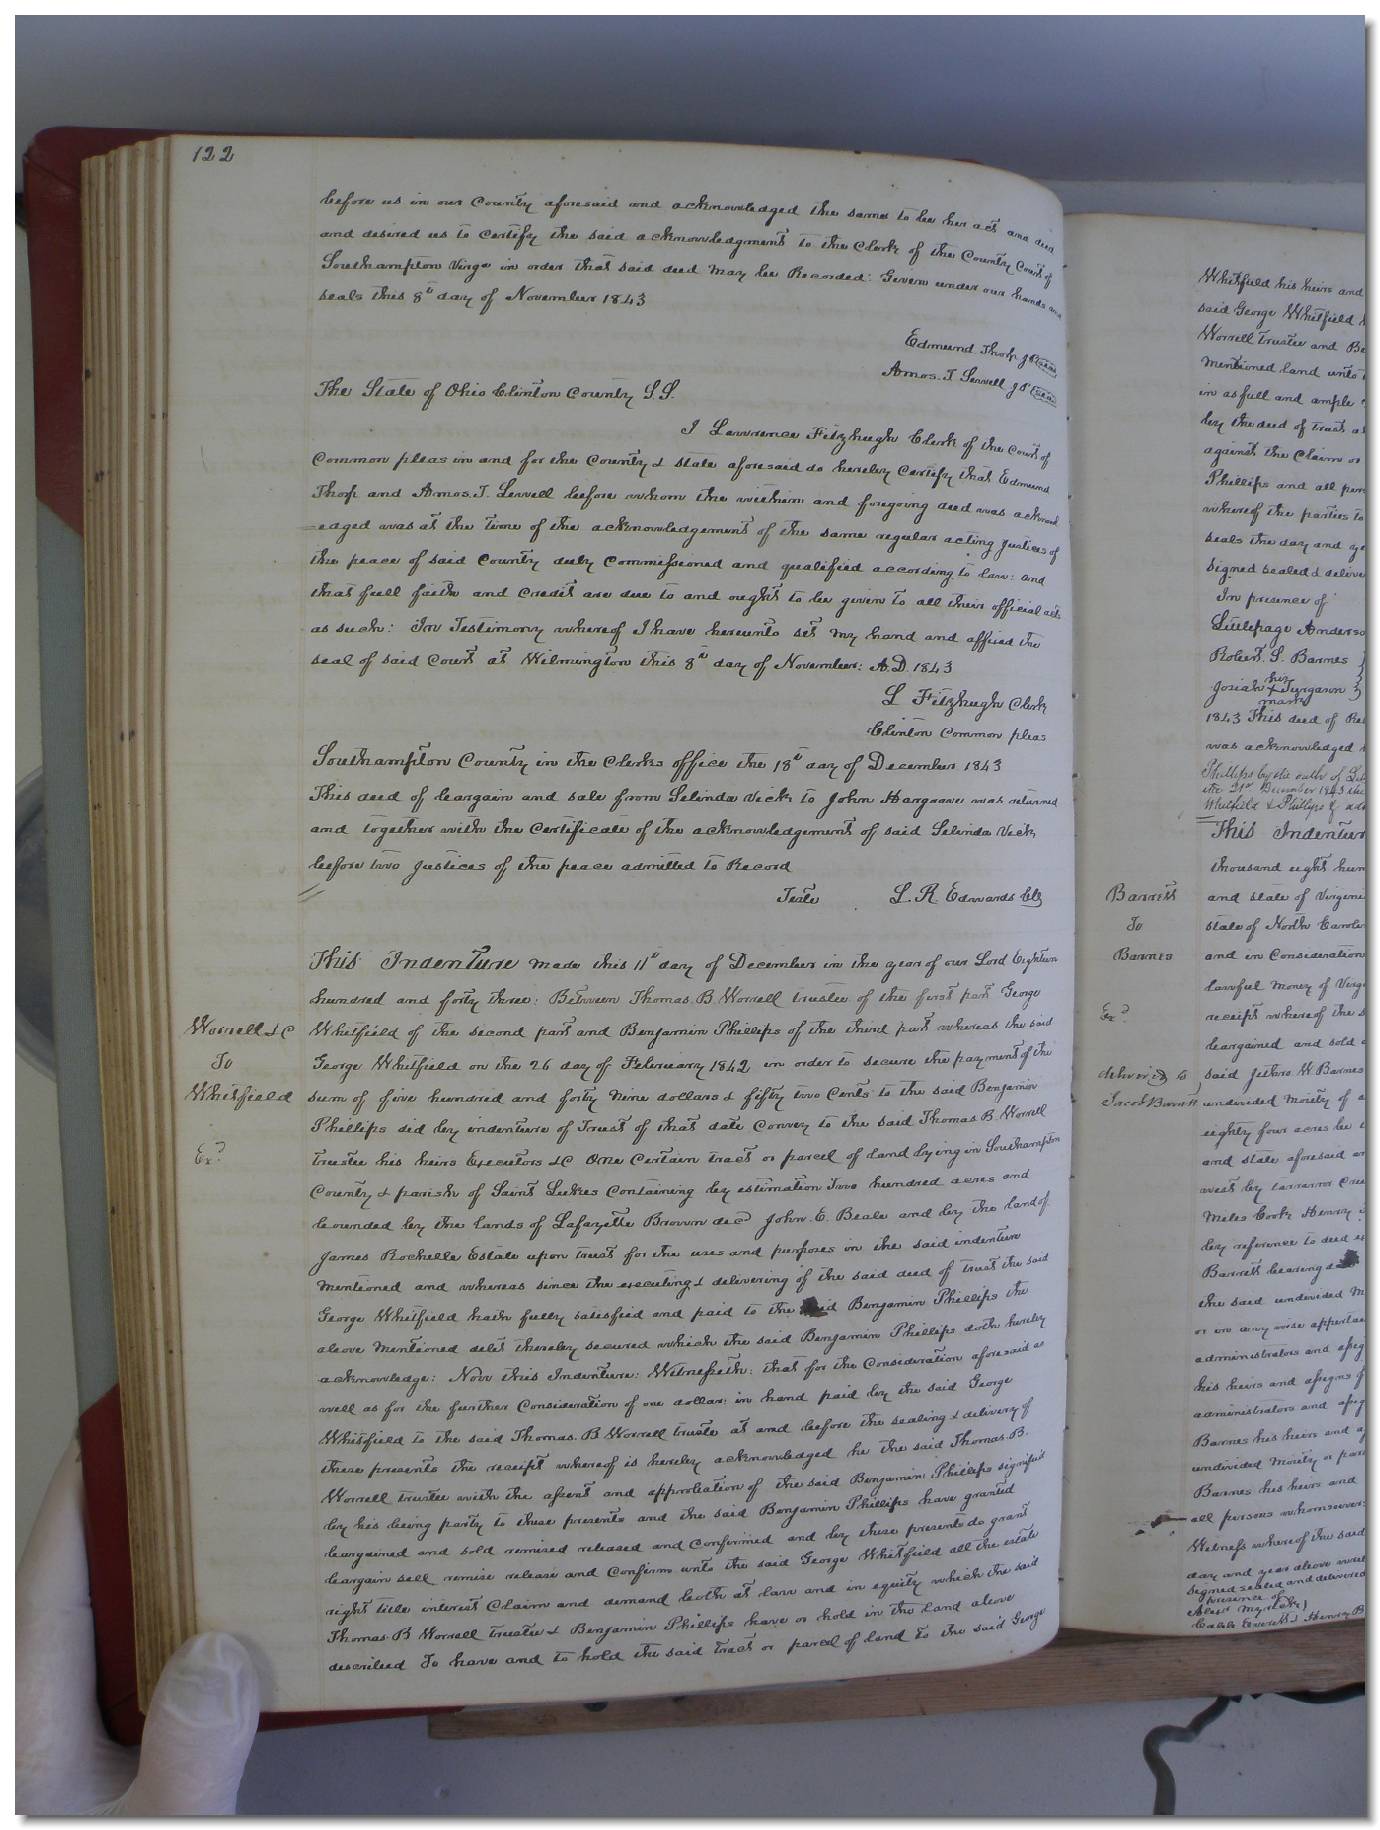 122
before us in our County aforesaid and acknowledged the same to be her act and deed
and desired us to certify the said acknowledgment to the Clerk of the County Court of
Southampton Virga in order that said deed may be Recorded: Given under our hands and
seals this 8th day of November 1843
Edmund Thorp JP (Seal)
Amos. T. Sewell JP (Seal)
The State of Ohio Clinton County S.S.
I Lawrence Fitzhugh Clerk of the Court of
Common pleas in and for the County & state aforesaid do hereby Certify that Edmund
Thorp and Amos. T. Sewell before whom the within and foregoing deed was acknowl
=edged was at the time of the acknowledgement of the same regular acting Justices of
the peace of said County duly Commissioned and qualified according to law: and
that full faith and credit are due to and ought to be given to all their official acts
as such: In Testimony whereof I have hereunto set my hand and affixed the
seal of said Court at Wilmington this 8th day of November: A.D. 1843
L Fitzhugh Clerk
Clinton Common pleas
Southampton County in the Clerks office the 18th day of December 1843
This deed of bargain and sale from Selinda Vick to John Hargrave was returned
and together with the Certificate of the acknowledgement of said Selinda Vick
before two Justices of the peace admitted to Record
Teste L. R. Edwards Clk
This Indenture made this 11th day of December in the year of our Lord Eighteen
hundred and forty three: Between Thomas. B. Worrell trustee of the first part George
Worrell &C
To
Whitfield
Exd
Whitfield of the second part and Benjamin Phillips of the third part whereas the said
George Whitfield on the 26 day of February 1842 in order to secure the payment of the
sum of five hundred and forty nine dollars & fifty two Cents to the said Benjamin
Phillips did by indenture of Trust of that date Convey to the said Thomas B. Worrell
trustee his heirs Executors &C One Certain tract or parcel of land lying in Southampton
County & parish of Saint Lukes Containing by estimation Two hundred acres and
bounded by the lands of Lafayette Brown decd John. E. Beale and by the land of
James Rochelle Estate upon trust for the uses and purposes in the said indenture
mentioned and whereas since the executing & delivering of the said deed of trust the said
George Whitfield hath fully satisfied and paid to the said Benjamin Phillips the
above mentioned debt thereby secured which the said Benjamin Phillips doth hereby
acknowledge: Now this Indenture: Witnesseth: that for the Consideration aforesaid as
well as for the further Consideration of one dollar: in hand paid by the said George
Whitfield to the said Thomas. B Worrell truste at and before the sealing & delivery of
these presents the receipt whereof is hereby acknowledged he the said Thomas. B.
Worrell trustee with the assent and approbation of the said Benjamin Phillips signified
by his being party to these presents and the said Benjamin Phillips have granted
bargained and sold remised released and Confirmed and by these presents do grant
bargain sell remise release and Confirm unto the said George Whitfield all the estate
right title interest Claim and demand both at law and in equity which the said
Thomas. B Worrell trustee & Benjamin Phillips have or hold in the land above
described To have and to hold the said tract or parcel of land to the said George
Whitfield his heirs and
said George Whitfield
Worrell trustee and Be
mentioned land unto
in as full and ample
by the deed of trust a
against the Claim or
Phillips and all per
whereof the parties to
seals the day and ye
signed sealed & delive
In presence of
Littlepage Anderso
Robert. S. Barnes
Josiah his + mark Jurgason
1843 This deed of Re
was acknowledged
Phillips by the oath of
the 21st December 1843
Whitfield & Phillips
This Indentur
thousand eight hun
Barrett
To
Barnes
Exd
delivered to
Jacob Barrett
and state of Virgini
state of North Carol
and in Consideration
lawful money of Virg
receipt whereof the s
bargained and sold
said Jethro W Barnes
undivided Moiety of
eighty four acres be
and state aforesaid
west by
Miles Cook Henry
by reference to deed
Barrett bearing
the said undivided M
or in any wise appertai
administrators and assig
his heirs and assigns f
administrators and assig
Barnes his heirs and
undivided Moiety or par
Barnes his heirs and
all persons whomsoever
Witness whereof the said
day and year above writ
signed sealed and delivered
presence of
& Henry B